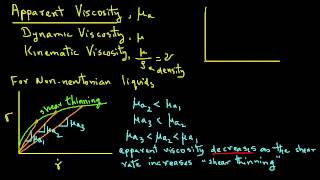 Apparent Viscosity, μa
Dynamic Viscosity, μ
Kinematic Viscosity, μ/ρ = ν
density
For Non-newtonian liquids
σ
shear thinning
μa1
μa2
μa3
γ̇
μa2 < μa1
μa3 < μa2
μa3 < μa2 < μa1
apparent viscosity decreases as the shear
rate increases "shear thinning"